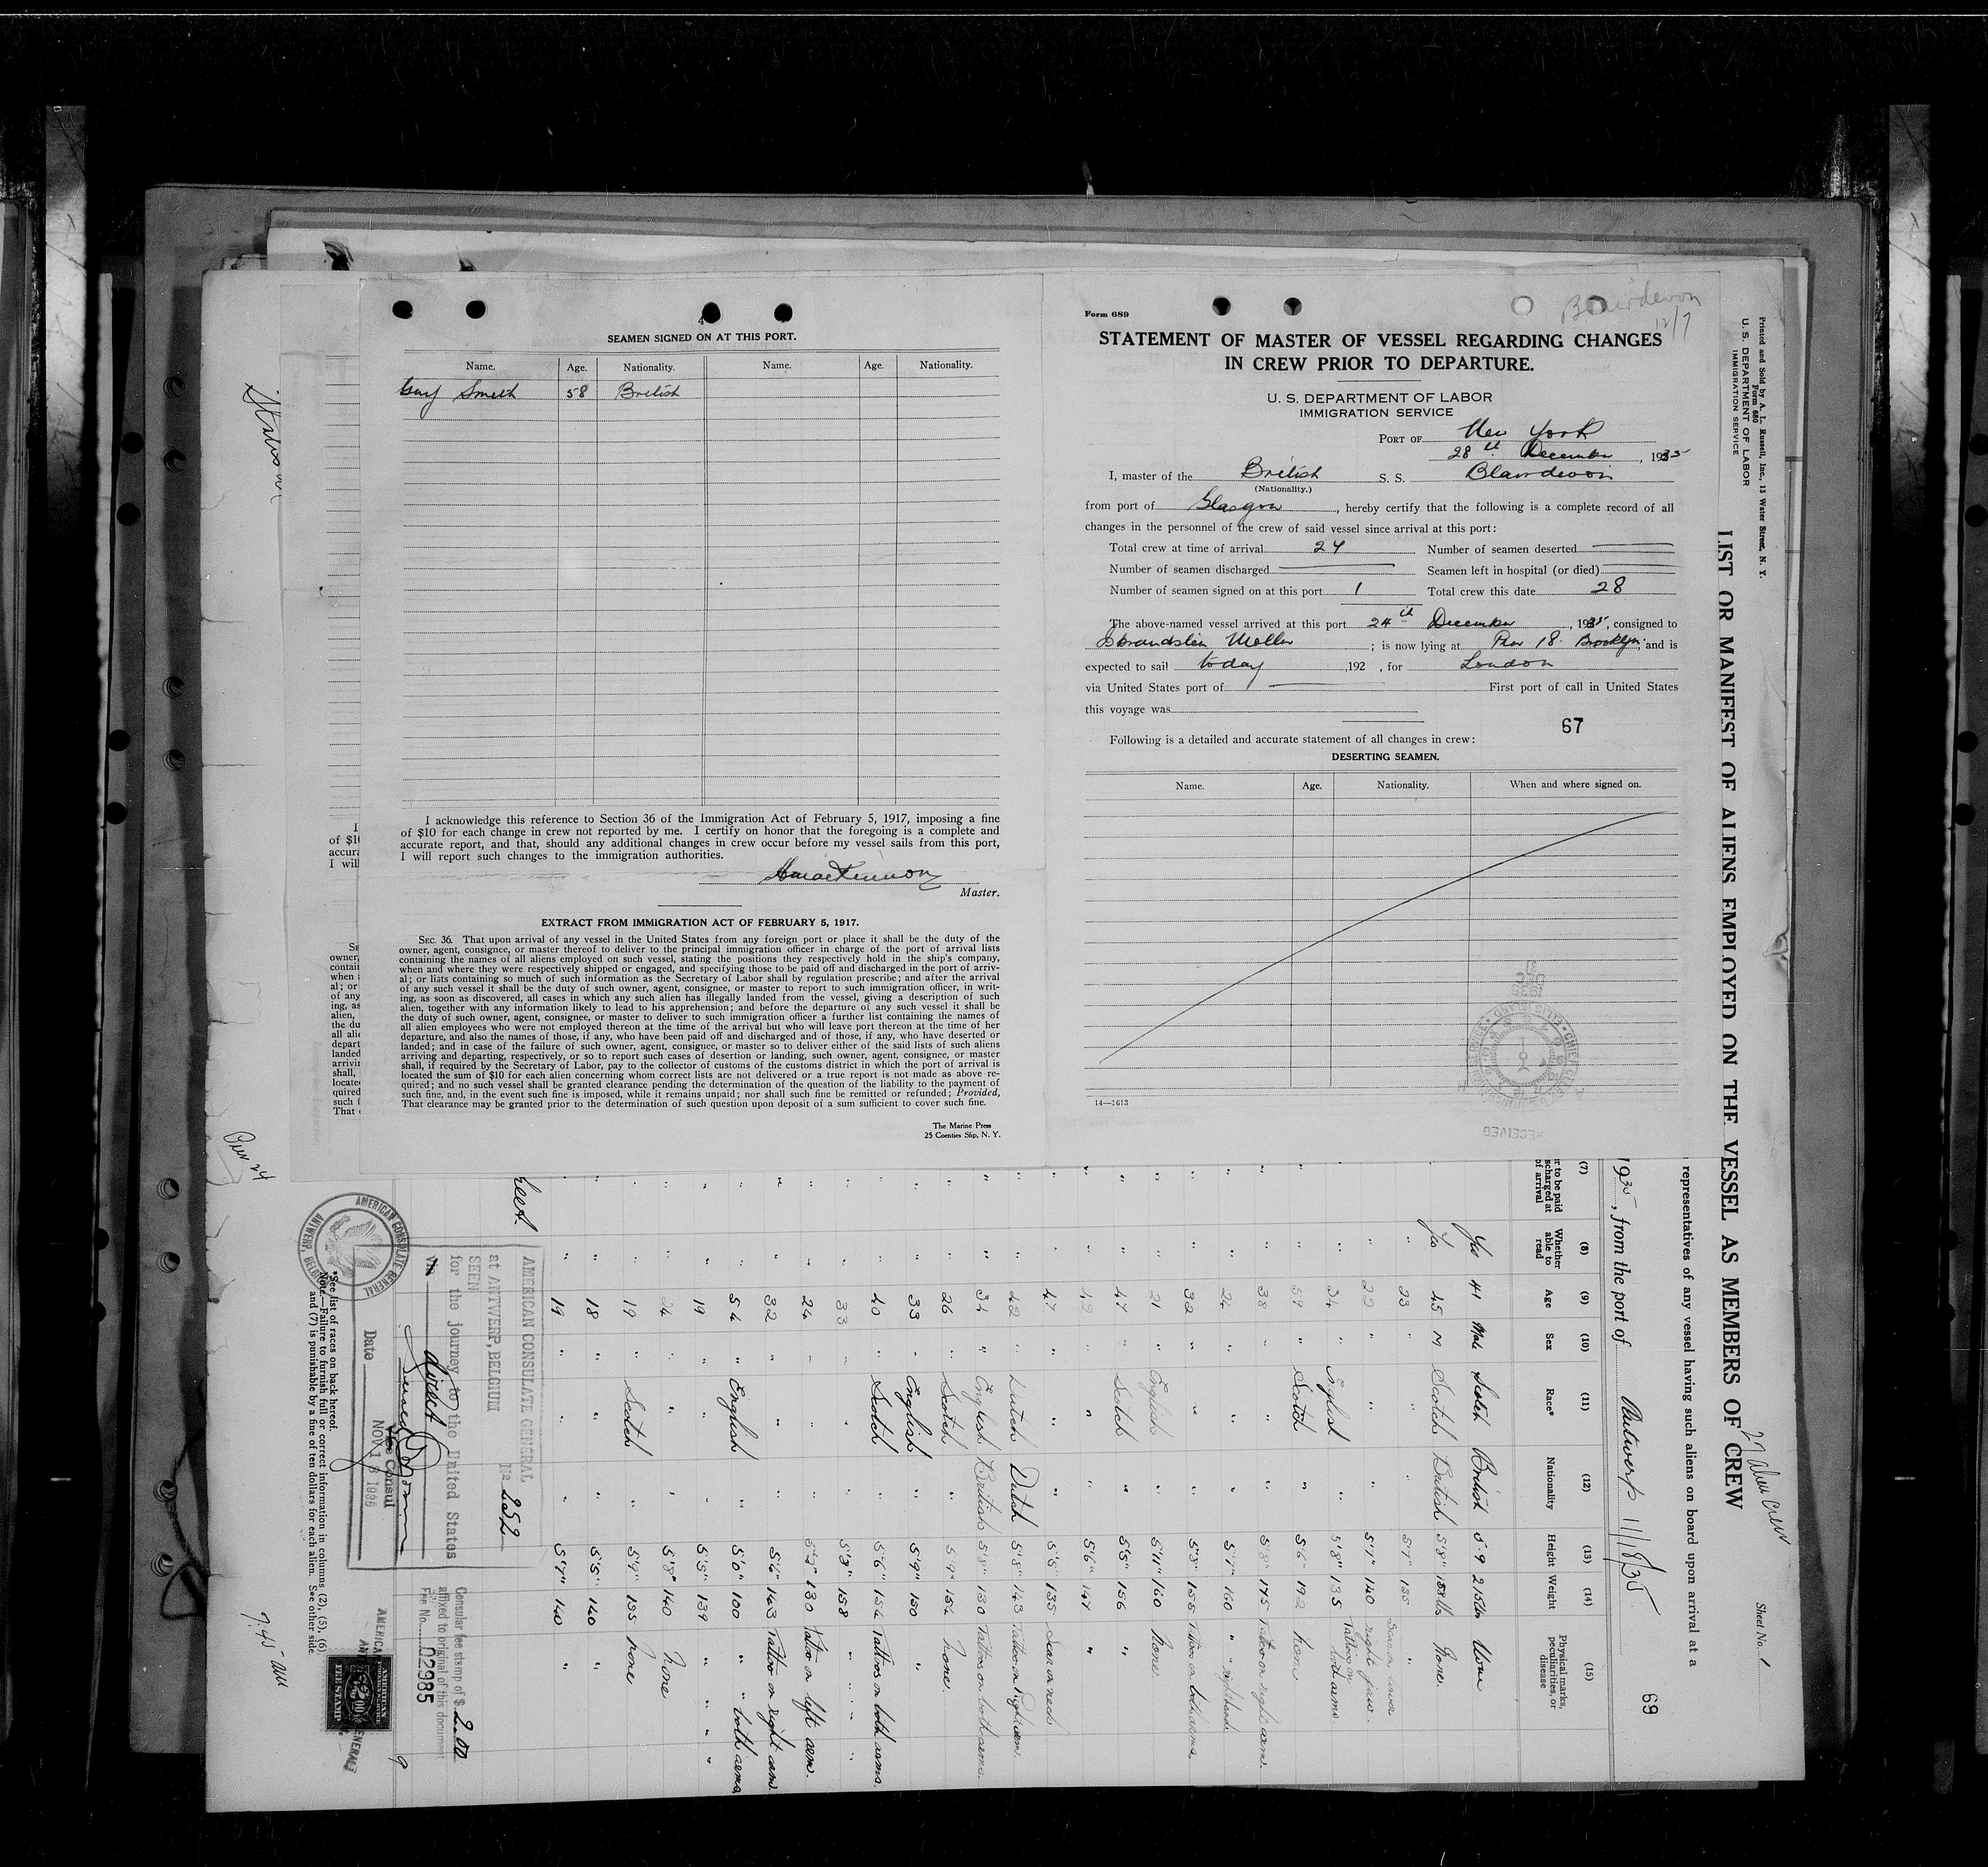 SEAMEN SIGNED ON AT THIS PORT.
Name. Age. Nationality. Name. Age. Nationality.
Smith 58 British
I acknowledge this reference to Section 36 of the Immigration Act of February 5, 1917, imposing a fine
of $10 for each change in crew not reported by me. I certify on honor that the foregoing is a complete and
accurate report, and that, should any additional changes in crew occur before my vessel sails from this port,
I will report such changes to the immigration authorities.
Master.
EXTRACT FROM IMMIGRATION ACT OF FEBRUARY 5, 1917.
SEC. 36. That upon arrival of any vessel in the United States from any foreign port or place it shall be the duty of the
owner, agent, consignee, or master thereof to deliver to the principal immigration officer in charge of the port of arrival lists
containing the names of all aliens employed on such vessel, stating the positions they respectively hold in the ship's company,
when and where they were respectively shipped or engaged, and specifying those to be paid off and discharged in the port of arriv-
al; or lists containing so much of such information as the Secretary of Labor shall by regulation prescribe; and after the arrival
of any such vessel it shall be the duty of such owner, agent, consignee, or master to report to such immigration officer, in writ-
ing, as soon as discovered, all cases in which any such alien has illegally landed from the vessel, giving a description of such
alien, together with any information likely to lead to his apprehension; and before the departure of any such vessel it shall be
the duty of such owner, agent, consignee, or master to deliver to such immigration officer a further list containing the names of
all alien employees who were not employed thereon at the time of the arrival but who will leave port thereon at the time of her
departure, and also the names of those, if any, who have been paid off and discharged and of those, if any, who have deserted or
landed; and in case of the failure of such owner, agent, consignee, or master so to deliver either of the said lists of such aliens
arriving and departing, respectively, or so to report such cases of desertion or landing, such owner, agent, consignee, or master
shall, if required by the Secretary of Labor, pay to the collector of customs of the customs district in which the port of arrival is
located the sum of $10 for each alien concerning whom correct lists are not delivered or a true report is not made as above re-
quired; and no such vessel shall be granted clearance pending the determination of the question of the liability to the payment of
such fine, and, in the event such fine is imposed, while it remains unpaid; nor shall such fine be remitted or refunded; Provided,
That clearance may be granted prior to the determination of such question upon deposit of a sum sufficient to cover such fine.
The Marine Press
25 Coenties Slip, N. Y.
Form 689
Blairdevon
12/7
STATEMENT OF MASTER OF VESSEL REGARDING CHANGES
IN CREW PRIOR TO DEPARTURE.
U. S. DEPARTMENT OF LABOR
IMMIGRATION SERVICE
PORT OF New York
28th December, 1935
I, master of the British S. S. Blairdevon
(Nationality.)
from port of Glasgow, hereby certify that the following is a complete record of all
changes in the personnel of the crew of said vessel since arrival at this port:
Total crew at time of arrival 27 Number of seamen deserted
Number of seamen discharged Seamen left in hospital (or died)
Number of seamen signed on at this port 1 Total crew this date 28
The above-named vessel arrived at this port 24th December, 1935, consigned to
Moller; is now lying at Pier 18. Brooklyn; and is
expected to sail today, 192 , for London
via United States port of First port of call in United States
this voyage was
67
Following is a detailed and accurate statement of all changes in crew:
DESERTING SEAMEN.
Name. Age. Nationality. When and where signed on.
14—1613
RECEIVED
Printed and Sold by A. L. Russell, Inc., 13 Water Street, N. Y.
Form 680
U. S. DEPARTMENT OF LABOR
IMMIGRATION SERVICE
LIST OR MANIFEST OF ALIENS EMPLOYED ON THE VESSEL AS MEMBERS OF CREW
Sheet No. 1
27 alien crew
representatives of any vessel having such aliens on board upon arrival at a
1935, from the port of Antwerp 11/18/35
69
(7) (8) (9) (10) (11) (12) (13) (14) (15)
Whether able to read Age Sex Race* Nationality Height Weight Physical marks, peculiarities, or disease
Yes 41 Male Scotch British 5·9 215lbs None
Yes 45 M Scotch British 5'8" 158lbs None.
" 23 " " " 5'7" 135 "
" 22 " " " 5'7" 140 Scar on lower right jaw.
" 34 " English " 5'8" 135 Tattoo on both arms.
" 59 " Scotch " 5'6" 192 None
" 38 " " " 5'8" 175 Tatoo on right arm.
" 24 " " " 5'7" 160 " " right hand
" 32 " " " 5'8" 155 Tattoo on both arms
" 21 " English " 5'11" 160 None
" 47 " Scotch " 5'5" 156 "
" 42 " " " 5'6" 147 "
" 47 " " " 5'5" 135 Scar on neck
" 42 " Dutch Dutch 5'8" 143 Tattoo on Right arm.
" 34 " English British 5'8" 130 Tattoos on both arms.
" 26 " Scotch " 5'9" 154 None.
" 33 " English " 5'9" 150 "
" 40 " Scotch " 5'6" 154 Tattoos on both arms.
" 33 " " " 5'3" 158 " " "
" 24 " " " 5'2" 130 Tatoo on left arm.
" 32 " " " 5'6" 143 Tattoo on right arm.
" 54 " English " 5'0" 100 " " both arms
" 19 " " " 5'5" 139 " " "
" 24 " " " 5'8" 140 None
" 19 " Scotch " 5'9" 135 None
" 18 " " " 5'5" 140 "
" 19 " " " 5'7" 140 "
AMERICAN CONSULATE GENERAL
at ANTWERP, BELGIUM
No 252
SEEN
for the journey to the United States
via direct
Vice Consul
Date NOV 18 1935
AMERICAN CONSULATE GENERAL
ANTWERP, BELGIUM
Consular fee stamp of $ 2.00
affixed to original of this document
Fee No. 02985
*See list of races on back hereof.
Note—Failure to furnish full or correct information in columns (2), (5), (6),
and (7) is punishable by a fine of ten dollars for each alien. See other side.
AMERICAN
FEE STAMP